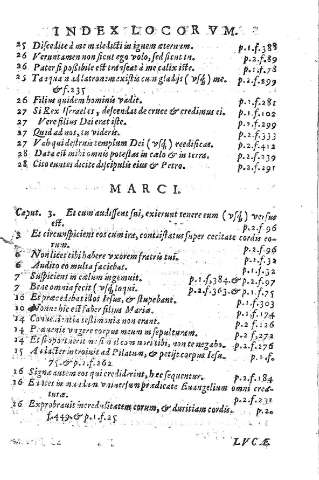 INDEX LOCORVM.
25 Discedite à me maledicti in ignem æternum. p.1.f.388
26 Veruntamen non sicut ego volo, sed sicut tu. p.2.f.89
26 Pater si possibile est transeat à me calix iste. p.1.f.78
25 Tanquam ad latronem existis cum gladijs (vsq;) me. p.2.f.899
& f.235
26 Filius quidem hominis vadit. p.2.f.281
27 Si Rex Israel es, descendat de cruce & credimus ei. p.1.f.102
27 Vere filius Dei erat iste. p.2.f.299
27 Quid ad nos, tu videris. p.2.f.333
27 Vah qui destruis templum Dei (vsq;) reedificas. p.2.f.412
28 Data est mihi omnis potestas in cælo & in terra. p.2.f.239
28 Cito euntes dicite discipulis eius & Petro. p.2.f.291
MARCI.
Caput. 3. Et cum audissent sui, exierunt tenere eum (vsq;) versus
est. p.2.f.96
3 Et circunspiciens eos cum ira, contristatus super cecitate cordis eo-
rum. p.2.f.96
6 Non licet tibi habere vxorem fratris tui. p.1.f.32
6 Audito eo multa faciebat. p.1.f.32
7 Suspiciens in cælum ingemuit. p.1.f.384.& p.2.f.97
7 Bene omnia fecit (vsq;) loqui. p.2.f.363.& p.1.f.75
10 Et præcedebat illos Iesus, & stupebant. p.1.f.303
10 Nonne hic est faber filius Mariæ. p.1.f.174
14 Conuenientia testimonia non erant. p.2.f.126
14 Præuenit vngere corpus meum in sepulturam. p.2.f.272
14 Et si oportuerit me simul commori tibi, non te negabo. p.2.f.276
15 Audacter introiuit ad Pilatum, & petijt corpus Iesu. p.1.f.
75.& p.1.f.262
16 Signa autem eos qui crediderint, hæc sequentur. p.2.f.184
16 Euntes in mundum vniuersum prædicate Euangelium omni crea-
turæ. p.2.f.231
16 Exprobrauit incredulitatem eorum, & duritiam cordis. p.20
f.449.& p.1.f.25
LVCÆ